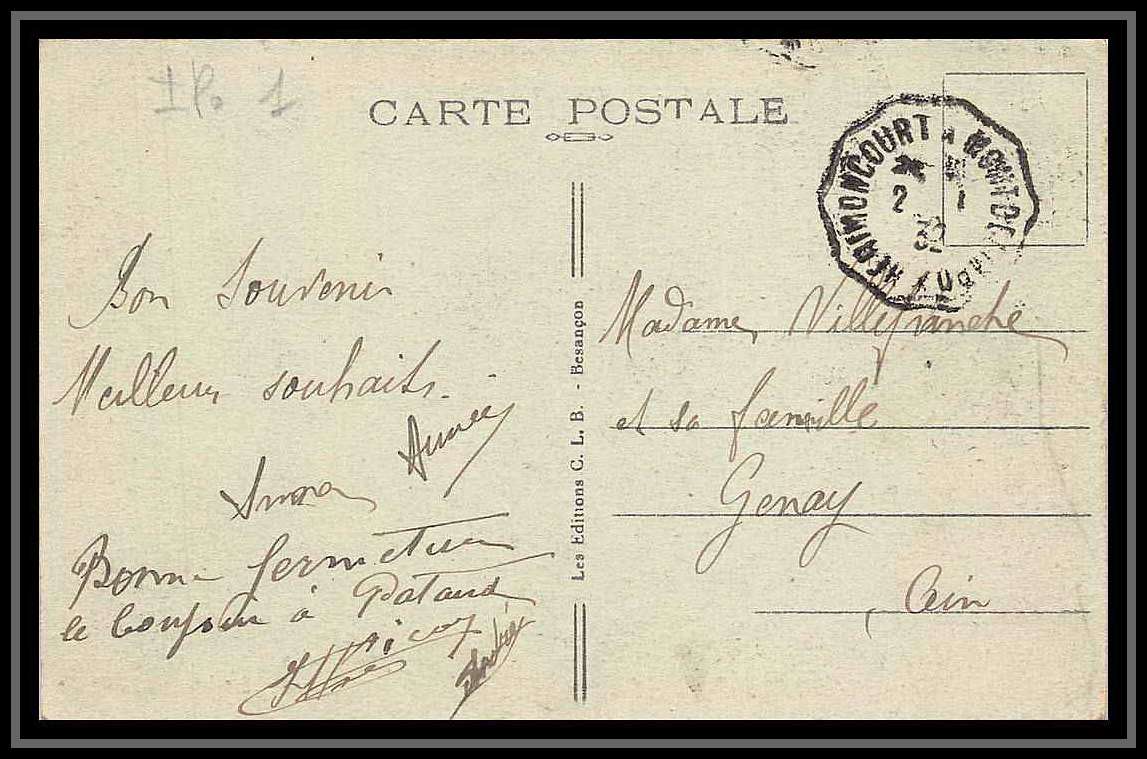 IP. 1
CARTE POSTALE
HÉRIMONCOURT A MONTBÉLIARD
2 1
32
Bon Souvenir
Meilleurs souhaits.
Aimée
Bonne fermeture
le bonjour à Pataud
Les Editions C. L. B. - Besançon
Madame Villefranche
et sa famille
Genay
Ain